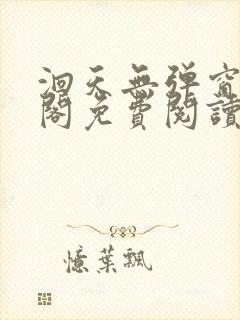 洄天無弹窗
閣免費閱讀
憶葉飄